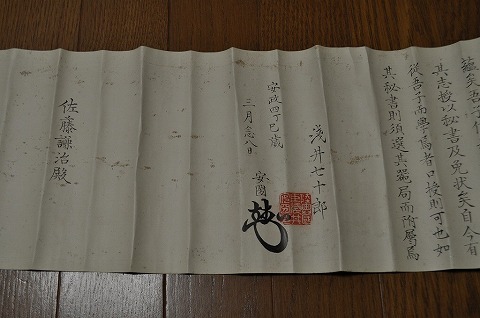 蘊矣吾子
其志授以秘書及免状矣自今有
從吾子而學焉者口授則可也如
其秘書則須選其器局而附屬焉
淺井七十郎
安政四丁巳歳
三月念八日
安國
佐藤謙治殿